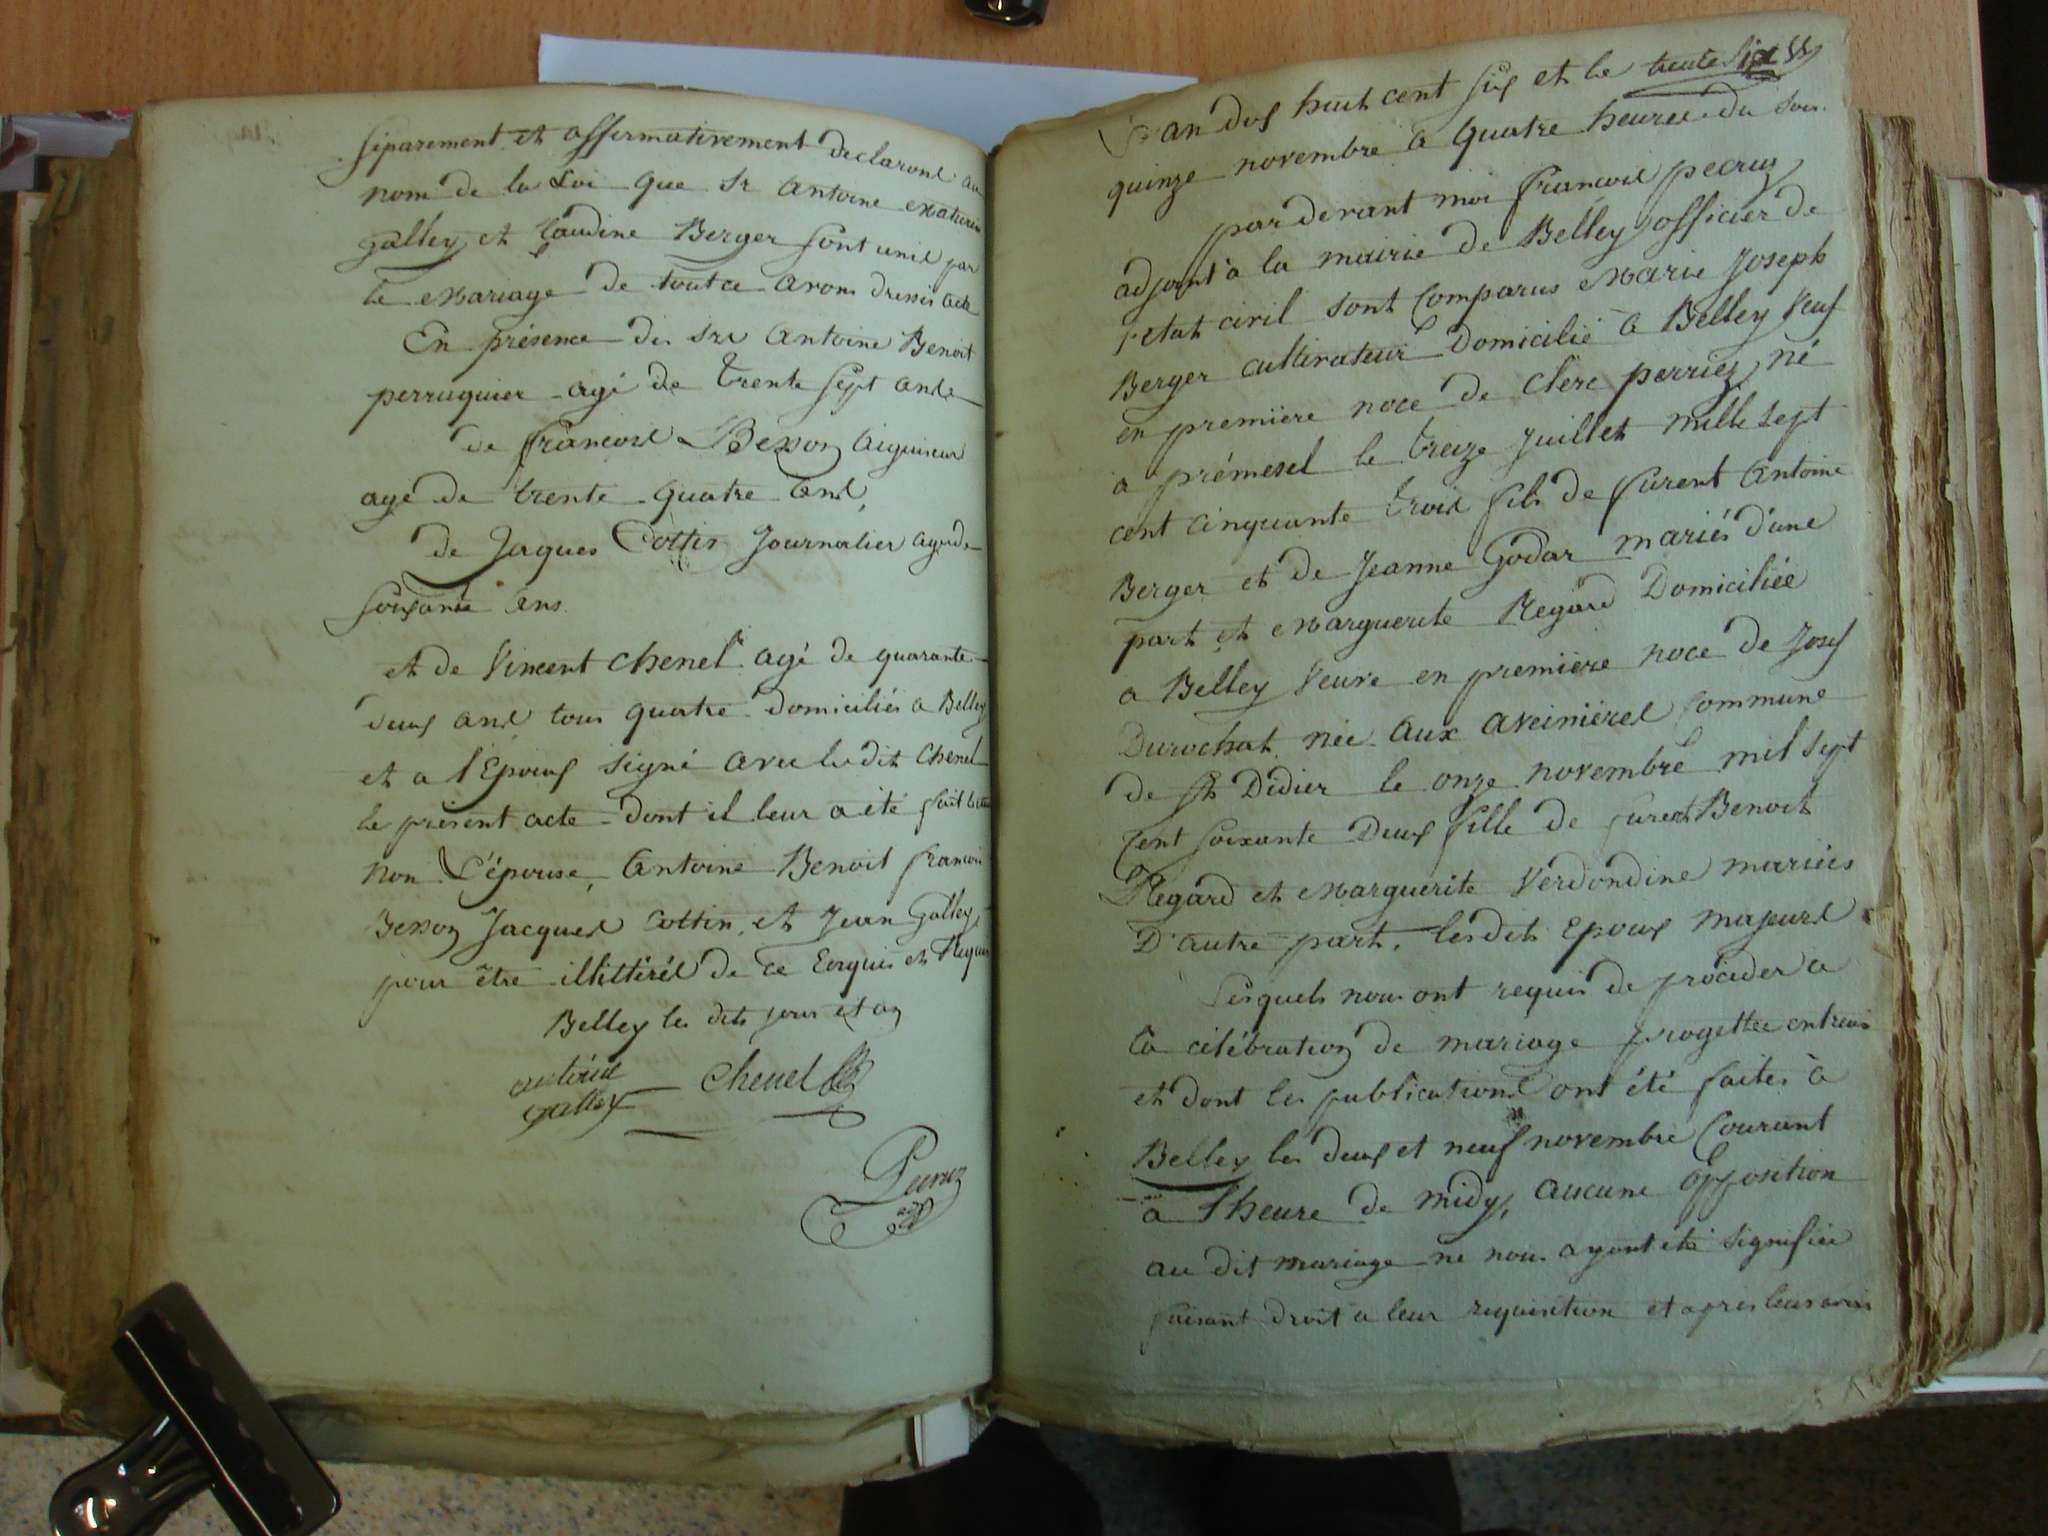 séparement et affirmativement declarons au
nom de la Loi que sr antoine Maturin
galley et Claudine Berger sont unis par
le Mariage de tout ce avons dressé acte
En présence de sre antoine Benoit
perruquier agé de trente sept ans
de francois Besson aiguiseur
agé de trente quatre ans
de Jaques Cottin Journalier agé de
soixante ans.
et de Vincent Chenel agé de quarante
deux ans tous quatre domiciliés a Belley
et a l'Epoux signé avec le dit Chenel
le présent acte dont il leur a été fait lecture
non L'épouse, antoine Benoit francois
Besson Jacques Cottin, et Jean Galley,
pour être illitérés de ce Enquis et Requis
Belley les dits jour et an
galley
Chenel
Pecruz
L'an dix huit cent six et le
quinze novembre a quatre heures du soir
par devant moi francois pecruz
adjoint à la mairie de Belley officier de
l'etat civil sont Comparus Marie Joseph
Berger cultivateur Domicilié a Belley Veuf
en premiere noce de Clere perriez né
a prémesel le treize Juillet mille sept
cent cinquante trois fils de furent Antoine
Berger et de Jeanne Godar mariés d'une
part et Marguerite Regard Domiciliée
a Belley Veuve en premiere noce de Josef
Durochat née aux aveinieres Commune
de St Didier le onze novembre mil sept
Cent soixante Deux fille de furent Benoit
Regard et Marguerite Verdondine mariés
D'autre part, lesdits Epoux majeurs
Lesquels nous ont requis de procéder a
La célébration de mariage progettée entreux
et dont les publications ont été faites à
Belley les deux et neuf novembre Courant
a l'heure de midy, aucune opposition
au dit mariage ne nous ayant été signifiée
faisant droit a leur requisition et apres leur avoir